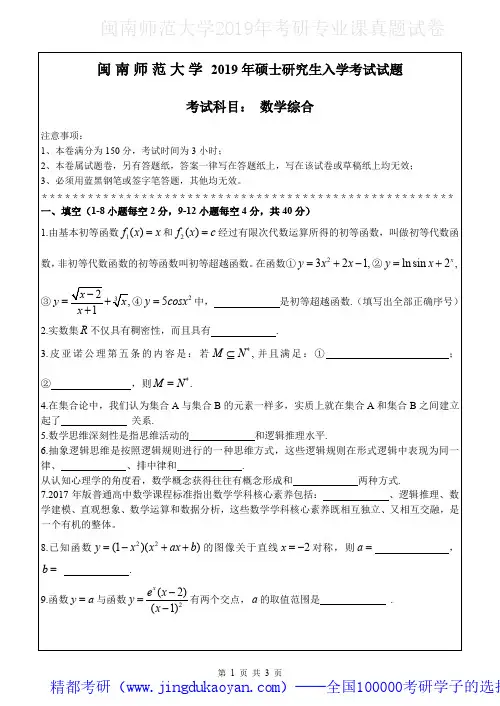 闽南师范大学2019年考研专业课真题试卷
闽 南 师 范 大 学 2019 年硕士研究生入学考试试题
考试科目： 数学综合
注意事项：
1、本卷满分为150分，考试时间为3小时；
2、本卷属试题卷，另有答题纸，答案一律写在答题纸上，写在该试卷或草稿纸上均无效；
3、必须用蓝黑钢笔或签字笔答题，其他均无效。
* * * * * * * * * * * * * * * * * * * * * * * * * * * * * * * * * * * * * * * * * * * * * * * * * * * * *
一、填空（1-8小题每空2分，9-12小题每空4分，共40分）
1.由基本初等函数 f₁(x) = x 和 f₂(x) = c 经过有限次代数运算所得的初等函数，叫做初等代数函
数，非初等代数函数的初等函数叫初等超越函数。在函数① y = 3x² + 2x − 1, ② y = ln sin x + 2ˣ,
④ y = 5cosx² 中， 是初等超越函数.（填写出全部正确序号）
2.实数集 R 不仅具有稠密性，而且具有 .
3.皮亚诺公理第五条的内容是：若 M ⊆ N*, 并且满足：① ；
② ，则 M = N*.
4.在集合论中，我们认为集合A与集合B的元素一样多，实质上就在集合A和集合B之间建立
起了 关系.
5.数学思维深刻性是指思维活动的 和逻辑推理水平.
6.抽象逻辑思维是按照逻辑规则进行的一种思维方式，这些逻辑规则在形式逻辑中表现为同一
律、 、排中律和 .
从认知心理学的角度看，数学概念获得往往有概念形成和 两种方式.
7.2017年版普通高中数学课程标准指出数学学科核心素养包括： 、逻辑推理、数
学建模、直观想象、数学运算和数据分析，这些数学学科核心素养既相互独立、又相互交融，是
一个有机的整体。
8.已知函数 y = (1 − x²)(x² + ax + b) 的图像关于直线 x = −2 对称，则 a = ，
b = .
9.函数 y = a 与函数 y = eˣ(x − 2)/(x − 1)² 有两个交点，a 的取值范围是 .
第 1 页 共 3 页
精都考研（www.jingdukaoyan.com）——全国100000考研学子的选